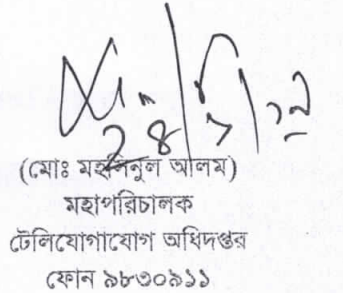 (মোঃ মহসিনুল আলম)
মহাপরিচালক
টেলিযোগাযোগ অধিদপ্তর
ফোন ৯৮৩০৯১১